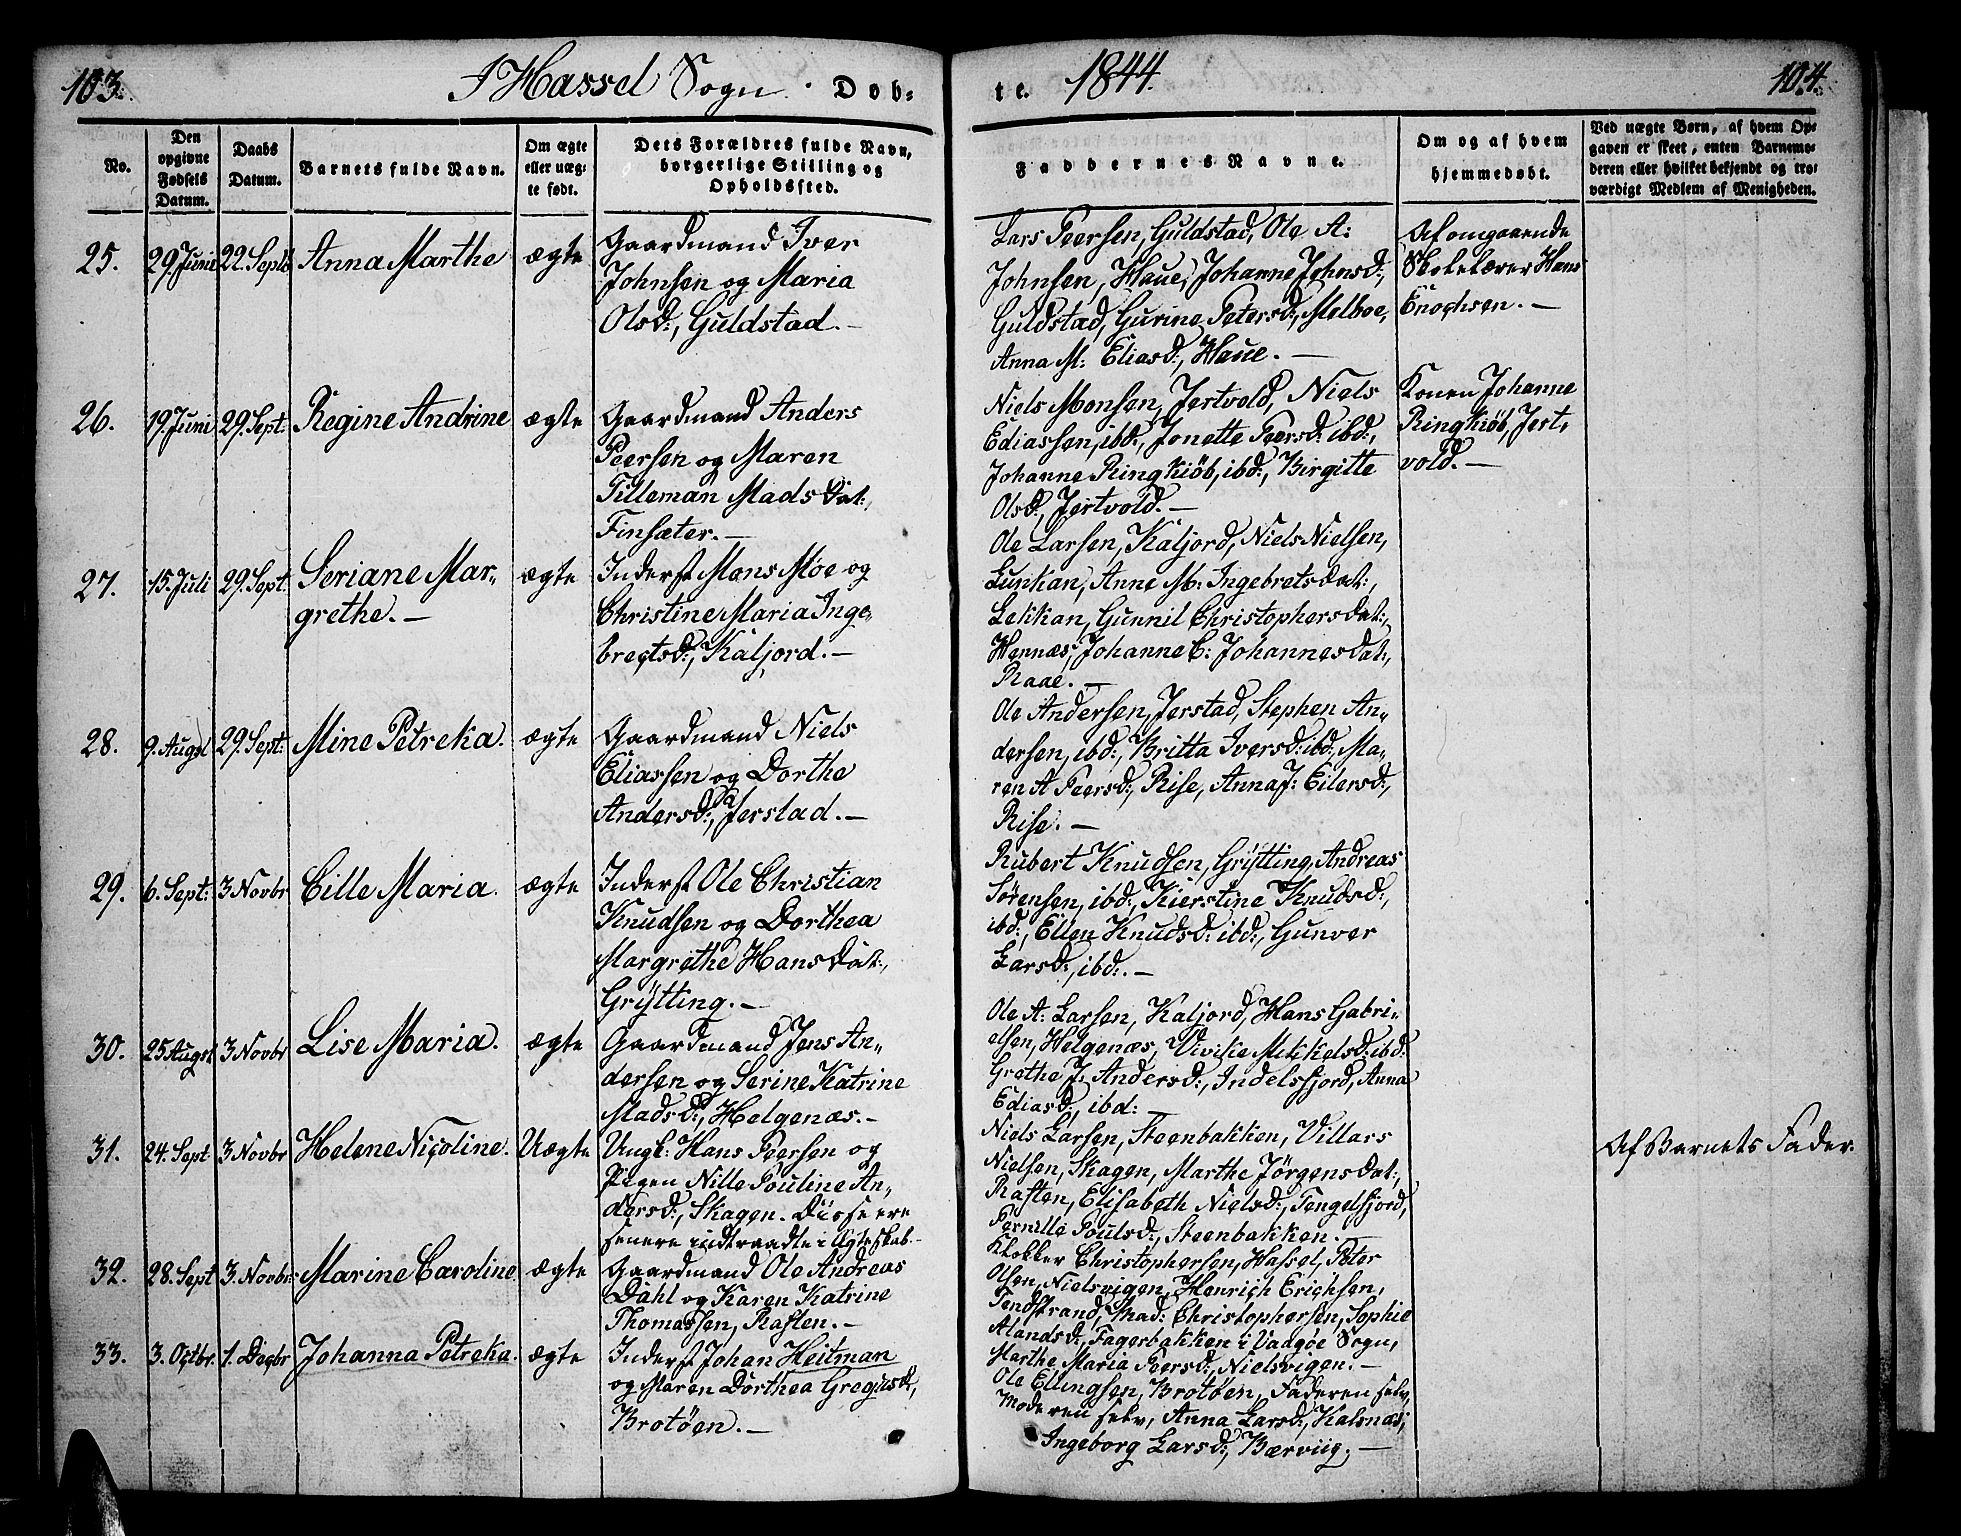 103. I Hassel Sogn. Døb-
te. 1844. 104.
No.
Den opgivne Fødsels Datum.
Daabs Datum.
Barnets fulde Navn.
Om ægte eller uæg-
te født.
Dets Forældres fulde Navn,
borgerlige Stilling og
Opholdssted.
Faddernes Navne.
Om og af hvem
hjemmedøbt.
Ved uægte Børn, af hvem Op-
gaven er skeet, enten Barnemo-
deren eller hvilket bekjendt og tro-
værdigt Medlem af Menigheden.
25. 29. Juni 22. Septb Anna Marthe ægte
Gaardmand Iver
Johnsen og Maria
Olsd:, Guldstad.-
Lars Peersen, Guldstad, Ole A:
Johnsen, Haue, Johanne Johnsd:,
Guldstad, Gurine Petersd:, Melboe,
Anna M: Eliasd:, Haue.-
Af omgaaende
Skolelærer Hans
Enochsen.-
26. 19. Juni 29. Sept: Regine Andrine ægte
Gaardmand Anders
Peersen og Maren
Tilleman Mads Dat:,
Finsæter.-
Niels Monsen, Jertvold, Niels
Ediassen, ibd:, Jonette Peersd: ibd:,
Johanne Ringkiöb, ibd:, Birgitte
Olsd:, Jertvold.-
Konen Johanne
Ringkiöb, Jert-
vold.-
27. 15. Juli 29. Sept: Seriane Mar-
grethe.- ægte
Inderst Mons Moe og
Christine Maria Inge-
brectsd:, Kaljord.-
Ole Larsen, Kaljord, Niels Nielsen,
Lunkan, Anne M: Ingebretsdat:,
Lekkan, Gunnil Christophersdat:,
Hennæs, Johanne C: Johannesdat:,
Raae.-
28. 9. Augst 29. Sept: Mine Petreka. ægte
Gaardmand Niels
Eliassen og Dorthe
Andersd:, Jerstad.-
Ole Andersen, Jerstad, Stephen An-
dersen, ibd:, Britta Iversd: ibd:, Ma-
ren A Peersd:, Rise, Anna J: Eilersd:,
Rise.-
29. 6. Sept: 3 Novbr Cille Maria. ægte
Inderst Ole Christian
Knudsen og Dorthea
Margrethe Hans Dat:,
Grÿtting.-
Rubert Knudsen, Grÿtting, Andreas
Sörensen, ibd:, Kierstine Knudsd:,
ibd:, Ellen Knudsd: ibd:, Gunver
Larsd:, ibd:.-
30. 25 Augst 3 Novbr Lise Maria. ægte
Gaardmand Jens An-
dersen og Serine Katrine
Madsd:, Helgenæs.-
Ole A: Larsen, Kaljord, Hans Gabri-
elsen, Helgenæs, Vivike Mikkelsd: ibd:
Grethe J: Andersd:, Indelsfjord, Anna
Ediasd:, ibd:-
31. 24. Sept 3 Novbr Helene Nicoline. Uægte
Ungk: Hans Peersen og
Pigen Nille Pouline An-
dersd:, Skagen. Disse ere
senere indtraadte i Ægteskab.-
Niels Larsen, Steenbakken, Villars
Nielsen, Skagen, Marthe Jörgensdat:,
Raften, Elisabeth Nielsd:, Tengelfjord,
Pernille Poulsd:, Steenbakken.-
Af Barnets Fader.
32. 28. Sept 3. Novbr: Marine Caroline ægte
Gaardmand Ole Andreas
Dahl og Karen Katrine
Thomassen, Raften.-
Klokker Christophersen, Hassel, Peter
Olsen, Nielsvigen, Henrich Erichsen,
Tendstrand, Mad: Christophersen, Sophie
Alandsd:, Fagerbakken i Vaagøe Sogn,
Marthe Maria Peersd:, Nielsvigen.-
33. 3. Octbr. 1. Decbr Johanna Petreka. ægte
Inderst Johan Heitman
og Maren Dorthea Gregusd:,
Brotöen.-
Ole Ellingsen, Brotöen, Faderen selv,
Moderen selv, Anna Larsd:, Kalsnæs,
Ingeborg Larsd:, Bærviig.-